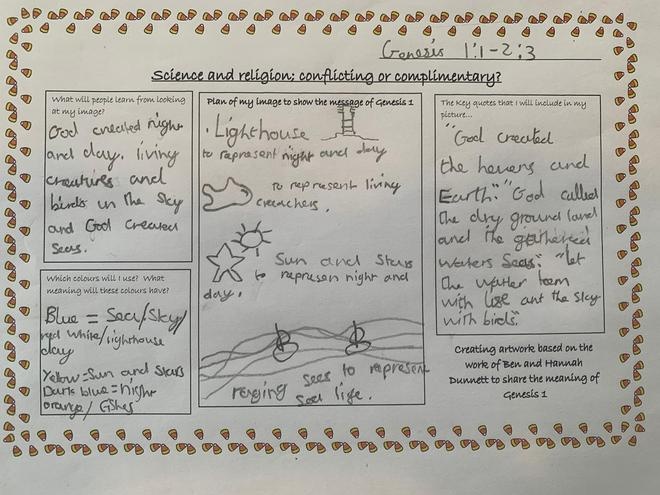 Genesis 1:1-2:3
Science and religion: conflicting or complimentary?
What will people learn from looking
at my image?
God created night
and day. living
creatures and
birds in the sky
and God created
seas.
Which colours will I use? What
meaning will these colours have?
Blue = Sea/Sky/
red white/lighthouse
day
Yellow = Sun and Stars
Dark blue = night
orange/
Plan of my image to show the message of Genesis 1
. Lighthouse
to represent night and day
to represent living
creachers.
Sun and Stars
to represen night and
day.
raging sees to represent
sea life.
The Key quotes that I will include in my
picture...
"God created
the hevens and
Earth." "God called
the dry ground land
and the gathered
waters Seas". "let
the water teem
with life ant the sky
with birds".
Creating artwork based on the
work of Ben and Hannah
Dunnett to share the meaning of
Genesis 1